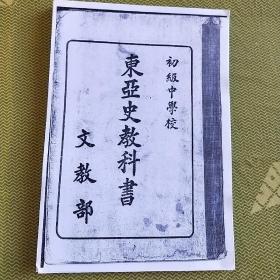 初級中學校
東亞史教科書
文教部